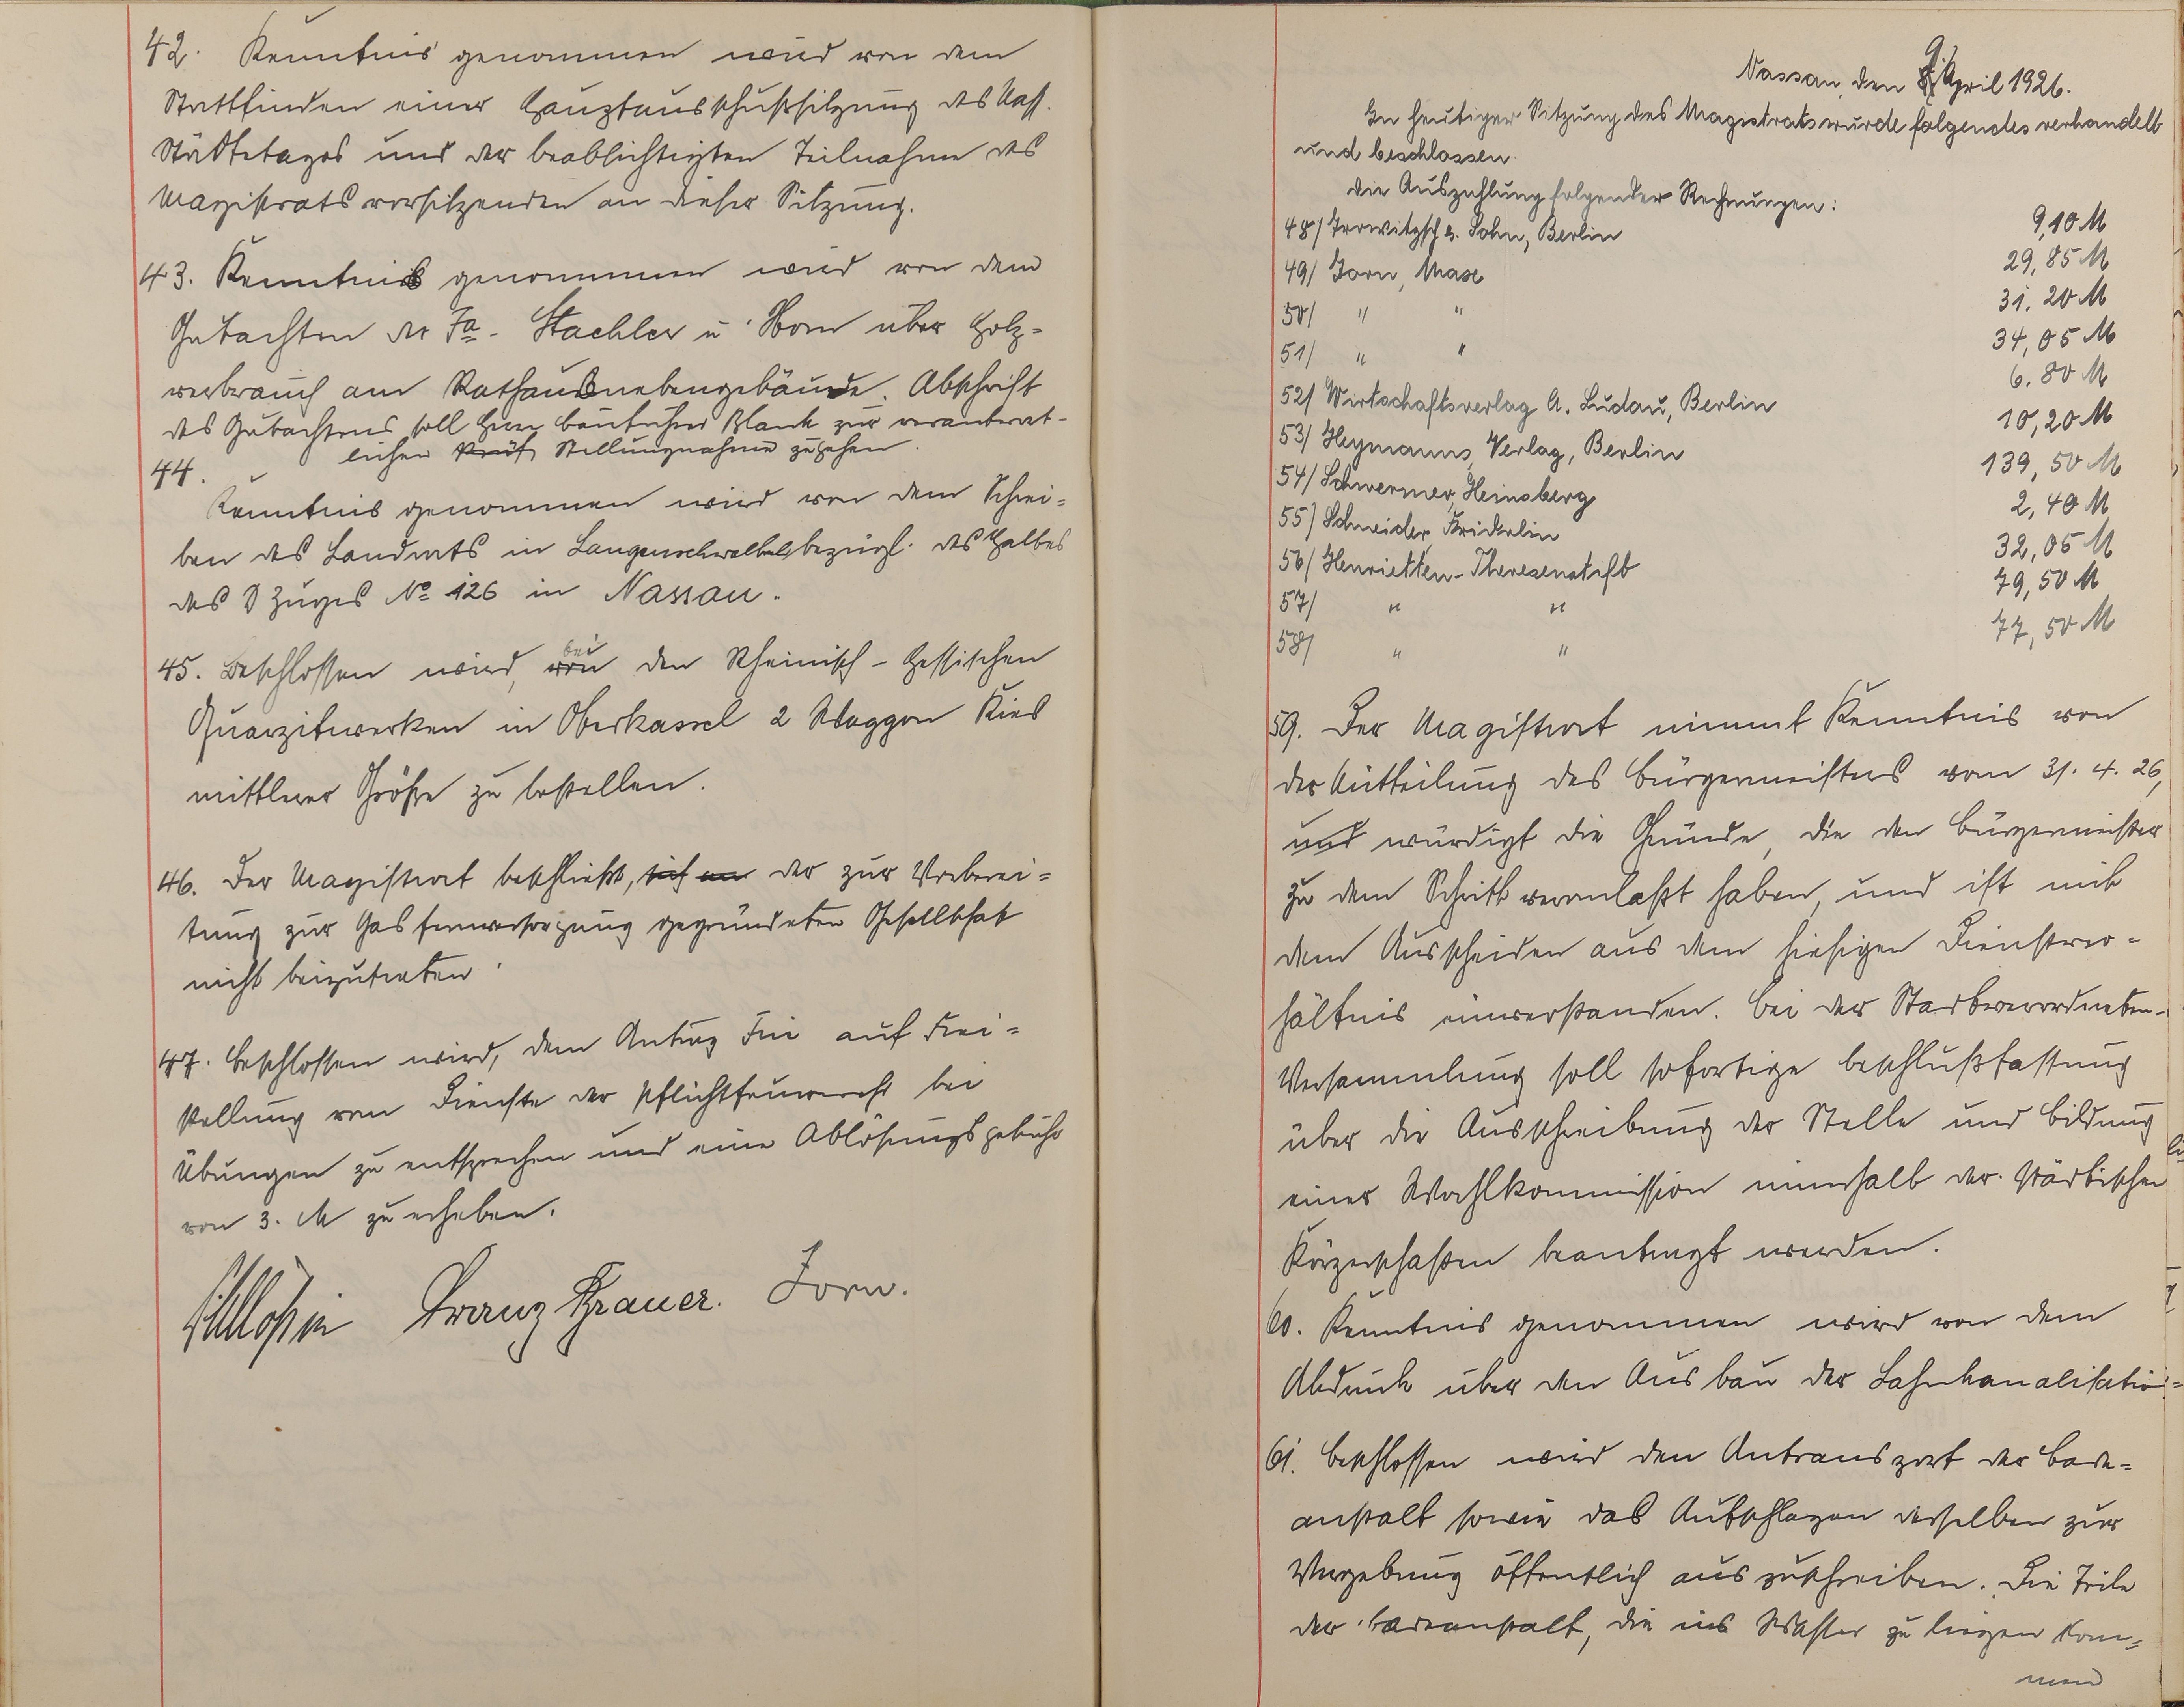 42. Kenntnis genommen wird von dem
Stattfinden einer Hauptausschußsitzung des Nass.
Städtetages und der beabsichtigten Teilnahme des
Magistratsvorsitzenden an dieser Sitzung.
43. Kenntnis genommen wird von dem
Gutachten der Fa. Staehler u. Horn über Holz-
verbrauch am Rathausnebengebäude. Abschrift
des Gutachtens soll Herrn Bauführer Blank zur verantwort-
lichen Prüf Stellungnahme zugehen.
44.
Kenntnis genommen wird von dem Schrei-
ben des Landrats in Langenschwalbach bezügl. des Haltes
des D Zuges No 126 in Nassau.
45. Beschlossen wird, von bei den Rheinisch-Hessischen
Quarzitwerken in Oberkassel 2 Waggon Kies
mittlerer Größe zu bestellen.
46. Der Magistrat beschließt, sich an der zur Vorberei-
tung zur Gasfernversorgung gegründeten Gesellschaft
nicht beizutreten.
47. Beschlossen wird, dem Antrag auf Frei-
stellung vom Dienste der Pflichtfeuerwehr bei
Übungen zu entsprechen und eine Ablösungsgebühr
von 3. M zu erheben.
Franz Brauer. Jorn.
Nassau, den 9. April 1926.
In heutiger Sitzung des Magistrats wurde folgendes verhandelt
und beschlossen.
die Auszahlung folgender Rechnungen:
48/ Trowitzsch u. Sohn, Berlin 9,10 M
49/ Jorn, Max 29,85 M
50/ " " 31,20 M
51/ " " 34,05 M
52/ Wirtschaftsverlag A. Sudau, Berlin 6.80 M
53/ Heymanns Verlag, Berlin 10,20 M
54/ Schwermer, Heinsberg 139,50 M
55/ Schneider, Fridolin 2,40 M
56/ Henrietten-Theresenstift 32,05 M
57/ " " 79,50 M
58/ " " 77,50 M
59. Der Magistrat nimmt Kenntnis von
der Mitteilung des Bürgermeisters vom 31. 4. 26,
und würdigt die Gründe, die den Bürgermeister
zu dem Schritt veranlaßt haben, und ist mit
dem Ausscheiden aus dem hiesigen Dienstver-
hältnis einverstanden. Bei der Stadtverordneten-
Versammlung soll sofortige Beschlußfassung
über die Ausschreibung der Stelle und Bildung
einer Wahlkommission innerhalb der städtischen
Körperschaften beantragt werden.
60. Kenntnis genommen wird von dem
Abdruck über den Ausbau der Lahnkanalisation
61. Beschlossen wird den Antransport der Bade-
anstalt sowie das Aufschlagen derselben zur
Vergebung öffentlich auszuschreiben. Die Teile
der Badeanstalt, die ins Wasser zu liegen kom-
men